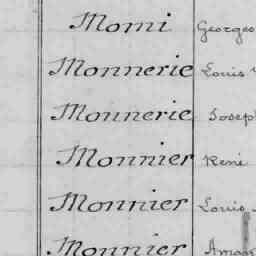 Momi Georges
Monnerie Louis
Monnerie Joseph
Monnier René
Monnier Louis
Monnier